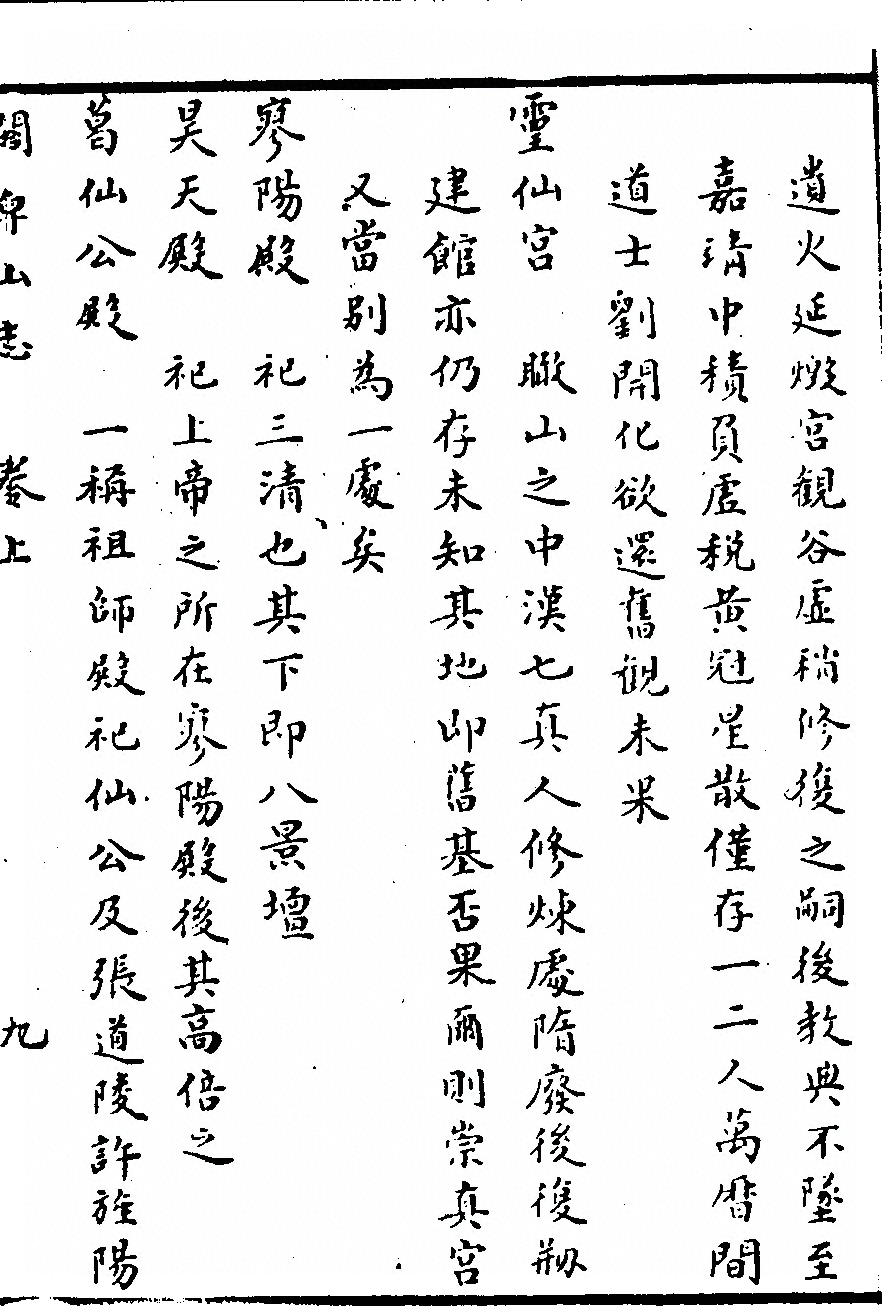 遺火延燬宮觀谷虛稍修復之嗣後教典不墜至
嘉靖中積負虛稅黃冠星散僅存一二人萬曆間
道士劉開化欲還舊觀未果
靈仙宮　瞰山之中漢七真人修煉處隋廢後復剏
建館亦仍存未知其地即舊基否果爾則崇真宮
又當別為一處矣
寥陽殿　祀三清也其下即八景壇
昊天殿　祀上帝之所在寥陽殿後其高倍之
葛仙公殿　一稱祖師殿祀仙公及張道陵許旌陽
閤皁山志　卷上　九